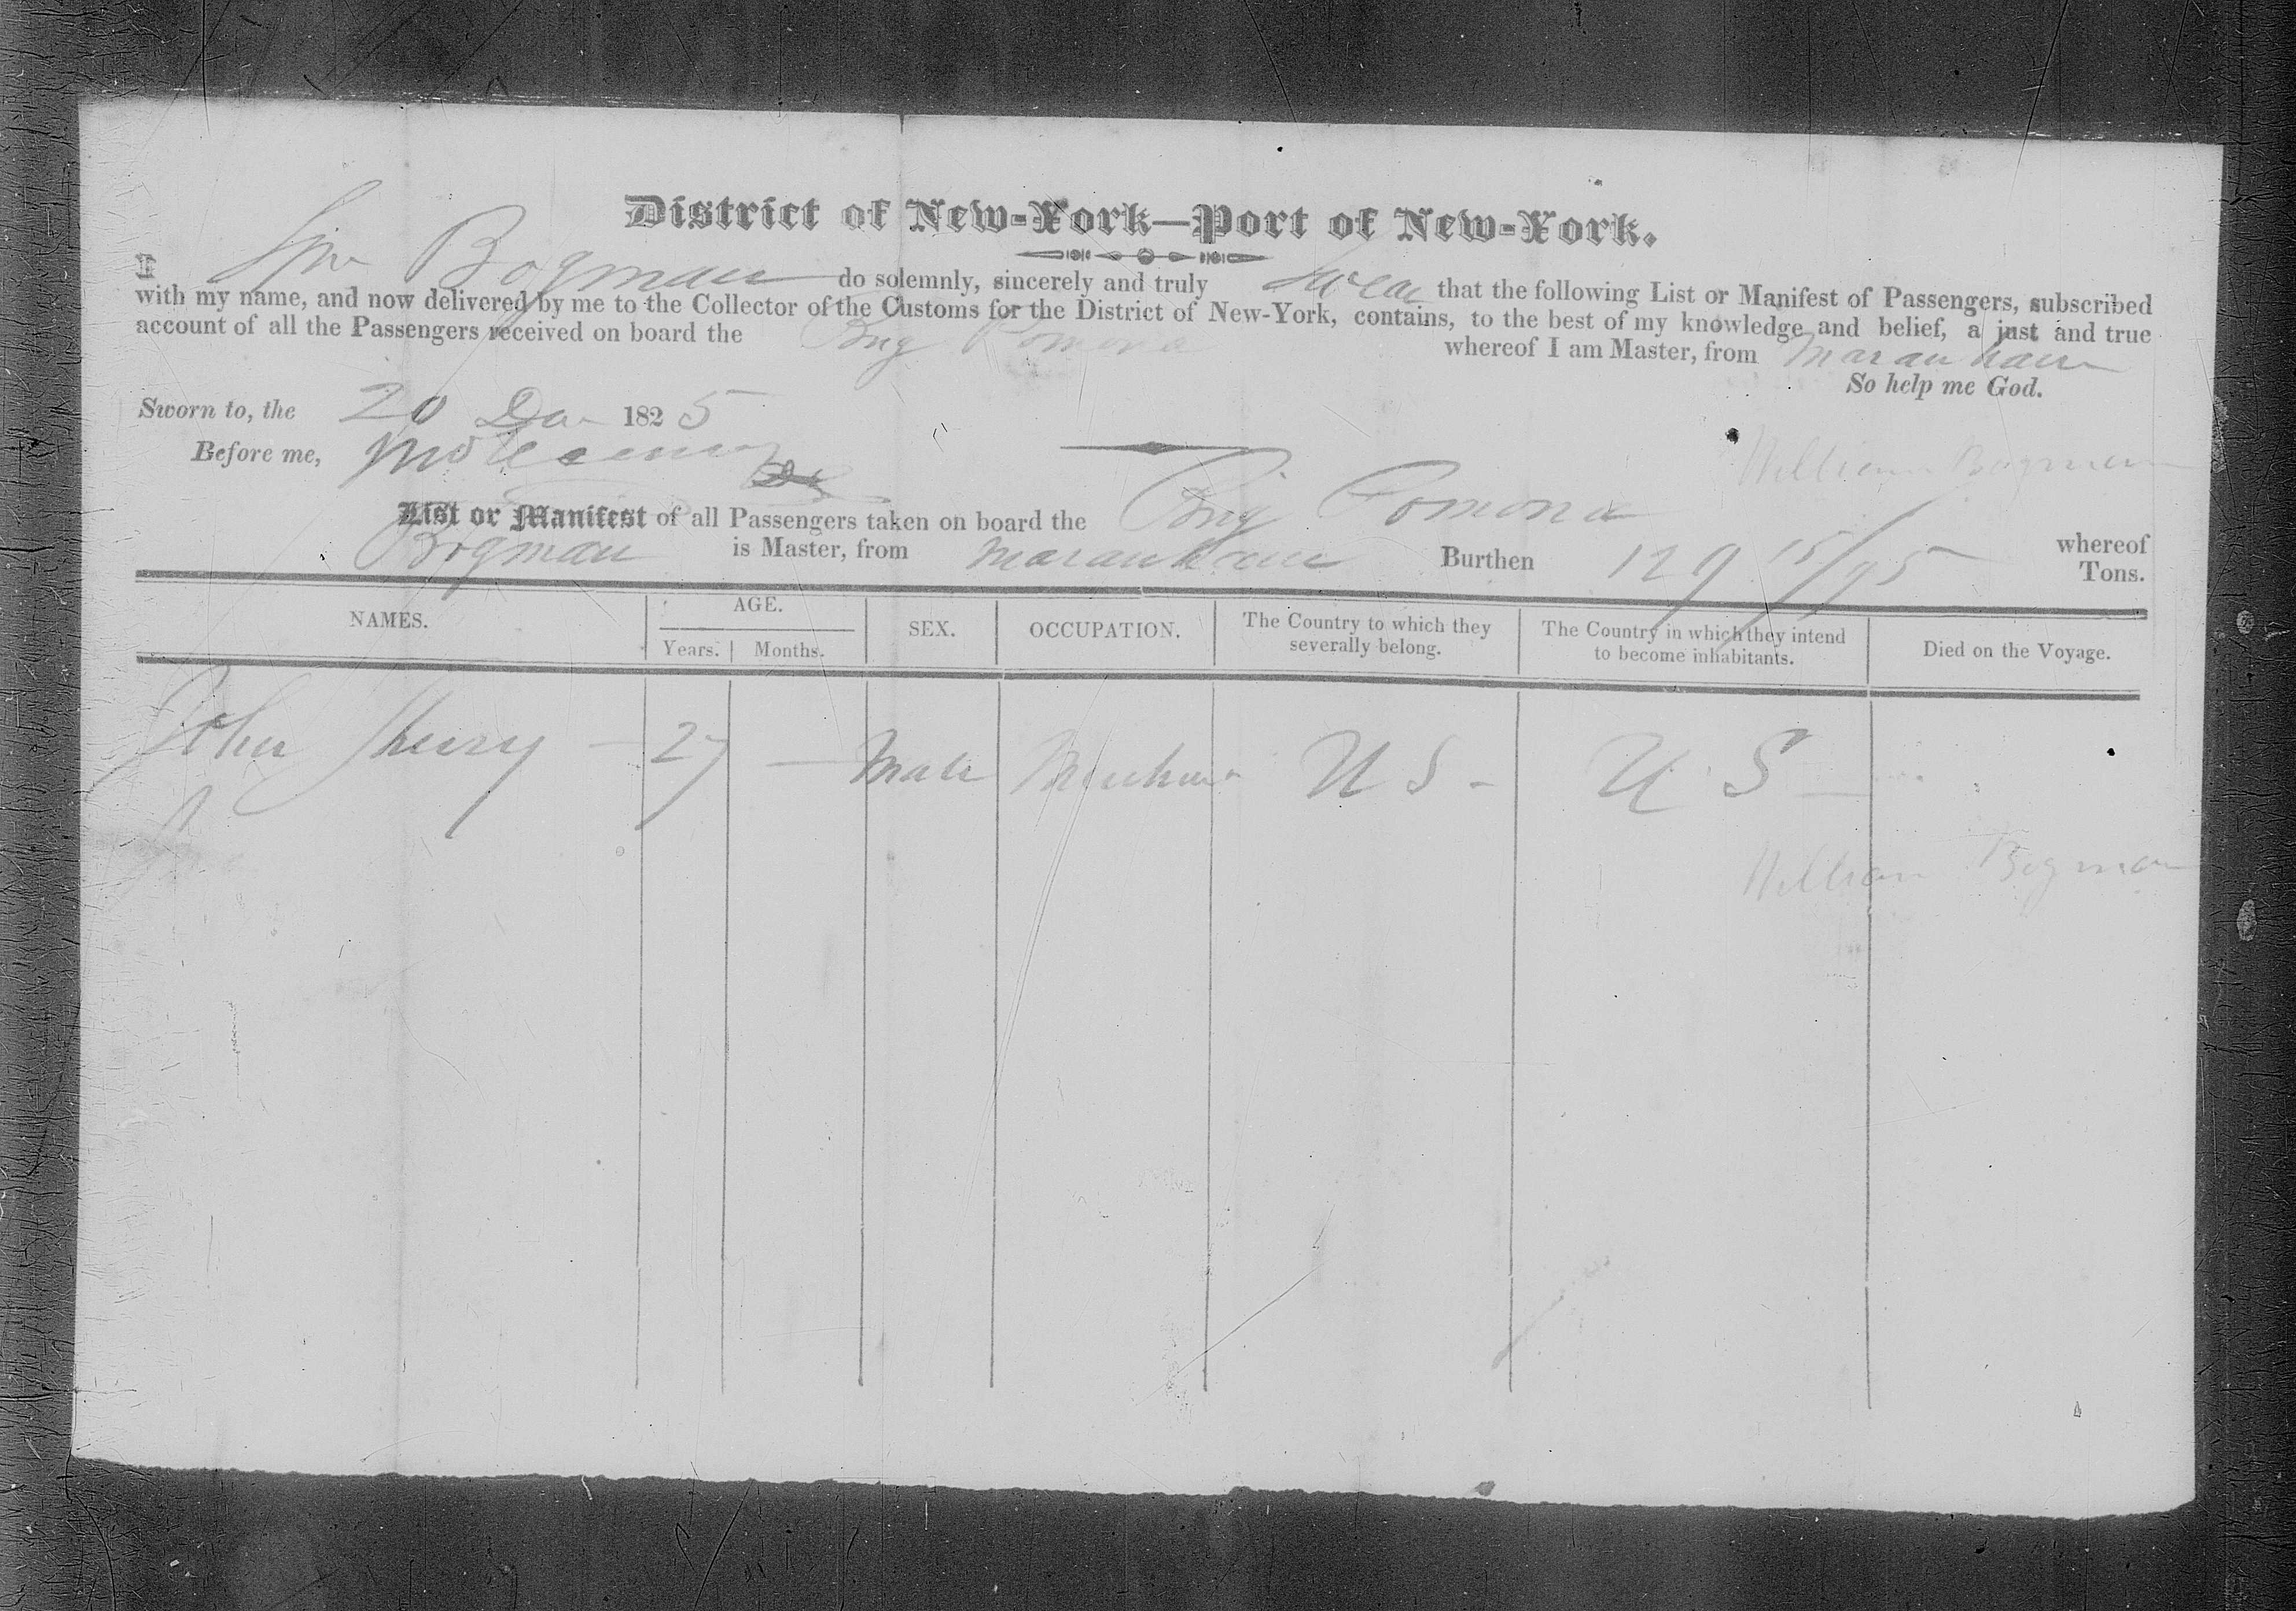 District of New-York—Port of New-York.
I Bogman do solemnly, sincerely and truly swear that the following List or Manifest of Passengers, subscribed
with my name, and now delivered by me to the Collector of the Customs for the District of New-York, contains, to the best of my knowledge and belief, a just and true
account of all the Passengers received on board the Brig Pomona whereof I am Master, from Maranham
So help me God.
Sworn to, the 20 1825
Before me,
William Bogman
List or Manifest of all Passengers taken on board the Brig Pomona whereof
Bogman is Master, from Maranham Burthen 129 15/95 Tons.
NAMES. AGE. Years. Months. SEX. OCCUPATION. The Country to which they severally belong. The Country in which they intend to become inhabitants. Died on the Voyage.
John 27 — Male U S - U S —
William Bogman